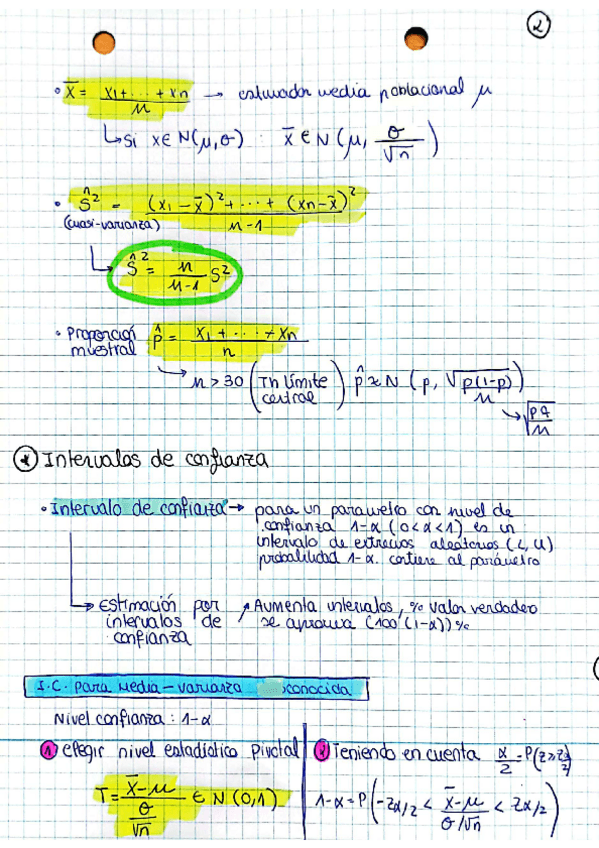 2
• x̄ = x1+...+xn / n → estimador media poblacional μ
↳ Si x ∈ N(μ,σ) : x̄ ∈ N(μ, σ/√n)
• Ŝ² = (x1-x̄)²+...+(xn-x̄)² / n-1
(cuasi-varianza)
↳ Ŝ² = n/n-1 S²
• Proporción muestral p̂ = x1+...+xn / n
↳ n>30 (Tn límite central) p̂ ≈ N (p, √(p(1-p)/n))
↳ √(pq/n)
* Intervalos de confianza
• Intervalo de confianza → para un parametro con nivel de
confianza 1-α (0<α<1) es un
intervalo de extremos aleatorios (L,U)
probabilidad 1-α. contiene al parámetro
↳ Estimación por ↗ Aumenta intervalos, % valor verdadero
intervalos de se aproxima (100(1-α))%
confianza
I.C. para media - varianza conocida
Nivel confianza : 1-α
1 elegir nivel estadístico pivotal
T = x̄-μ / σ/√n ∈ N(0,1)
2 Teniendo en cuenta α/2 = P(z>zα/2)
1-α = P(-zα/2 < x̄-μ / σ/√n < zα/2)